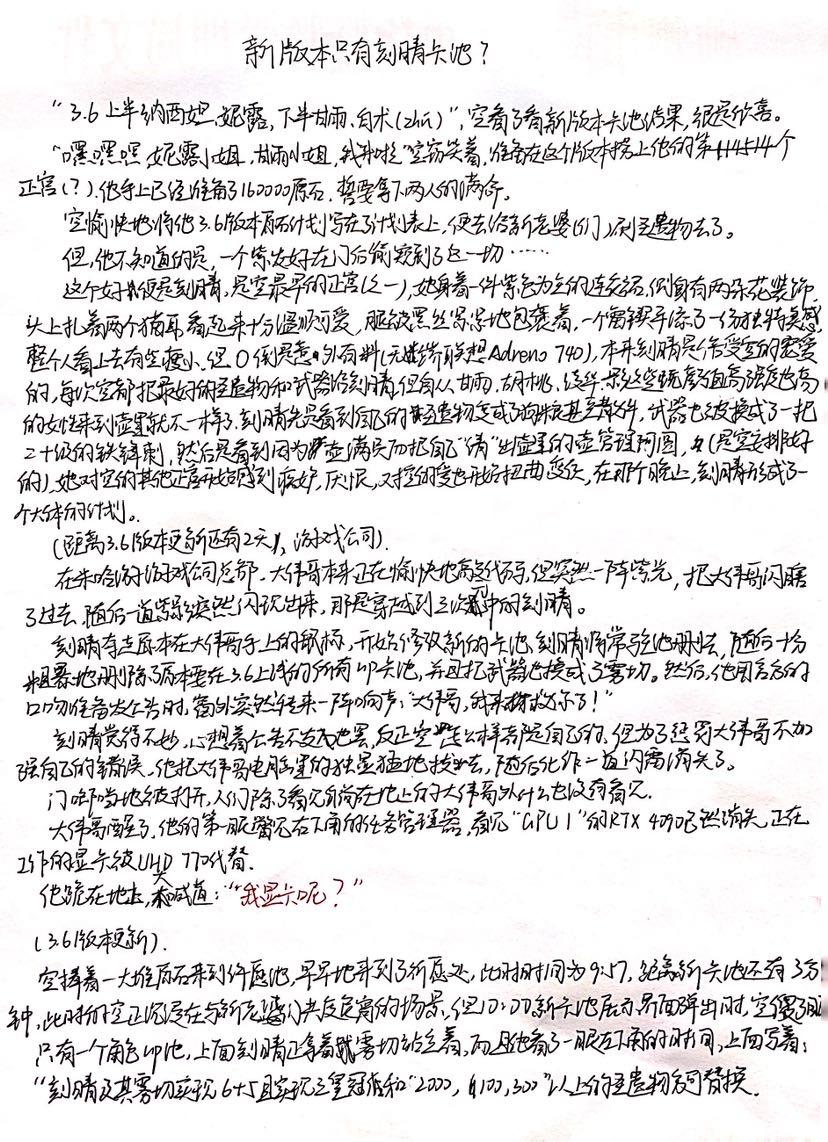 新版本只有刻晴卡池？
“3.6上半纳西妲、妮露，下半甘雨、白术(zhu)”，空看了看新版本卡池结果，很是欣喜。
“嘿嘿嘿，妮露小姐，甘雨小姐，我来啦”空窃笑着，准备在这个版本捞上他的第114514个
正宫(?)。他手上已经准备了160000原石，誓要拿下两人的满命。
空愉快地将他3.6版本原石计划写在了计划表上，便去给新老婆(们)刷圣遗物去了。
但，他不知道的是，一个紫发好在门后偷窥到了这一切……
这个好便是刻晴，是空最早的正宫(之一)，她身着一件紫色为主的连衣裙，侧身有两朵花装饰，
头上扎着两个猫耳，看起来十分温顺可爱，腿被黑丝紧紧地包裹着，一个高跟鞋增添了一份独特美感，
整个人看上去有些瘦小，但0倒是意外有料(无端联想Adreno 740)，本来刻晴是倍受空的宠爱
的，每次空都把最好的圣遗物和武器给刻晴，但自从甘雨、胡桃、绫华、影这些颜值高强度也高
的女性来到壶里就不一样了，刻晴先是看到自己的圣遗物变成了甚至散件，武器也被换成了一把
二十级的铁蜂刺，然后是看到因为壶满员而把自己“请”出壶里的壶管理阿圆，(是空安排好
的)，她对空的其他正宫开始感到嫉妒，厌恨，对空的爱也开始扭曲变质，在那个晚上，刻晴形成了一
个大体的计划。
(距离3.6版本更新还有2天)，游戏公司)
在米哈游游戏公司总部，大伟哥本来正在愉快地敲代码，但突然一阵紫光，把大伟哥闪瞎
了过去，随后一道紫影突然闪现出来，那是穿越到三次元中的刻晴。
刻晴夺走原本在大伟哥手上的鼠标，开始修改新的卡池，刻晴将常驻池删去，随后十分
粗暴地删除了原本要在3.6上线的所有up卡池，并且把武器池换成了雾切。然后，他用官方的
口吻准备发公告时，窗外突然传来一阵响声：“大伟哥，我来救你了！”
刻晴觉得不妙，心想着公告不发也罢，反正空怎么样都是自己的，但为了惩罚大伟哥不加
强自己的错误，他把大伟哥电脑里的独显猛地拔出去，随后化作一道闪雷消失了。
门哐当地被打开，人们除了看见倒在地上的大伟哥外什么也没有看见。
大伟哥醒了，他的第一眼瞥见右下角的任务管理器，看见“GPU 1”的RTX 4090已然消失，正在
工作的显卡被UHD 770代替。
他跪在地上，大喊道：“我显卡呢？”
(3.6版本更新)。
空捧着一大堆原石来到许愿池，早早地来到了祈愿处，此时时间为9:57，距离新卡池还有3分
钟，此时的空正沉浸在与新老婆们共度良宵的场景，但10:00新卡池展示界面弹出时，空傻了眼
只有一个角色up池，上面刻晴正拿着雾切站立着，而且他看了一眼左下角的时间，上面写着：
“刻晴及其雾切实现6+5且实现三皇冠伍和“2000，100，300”以上的圣遗物后可替换。